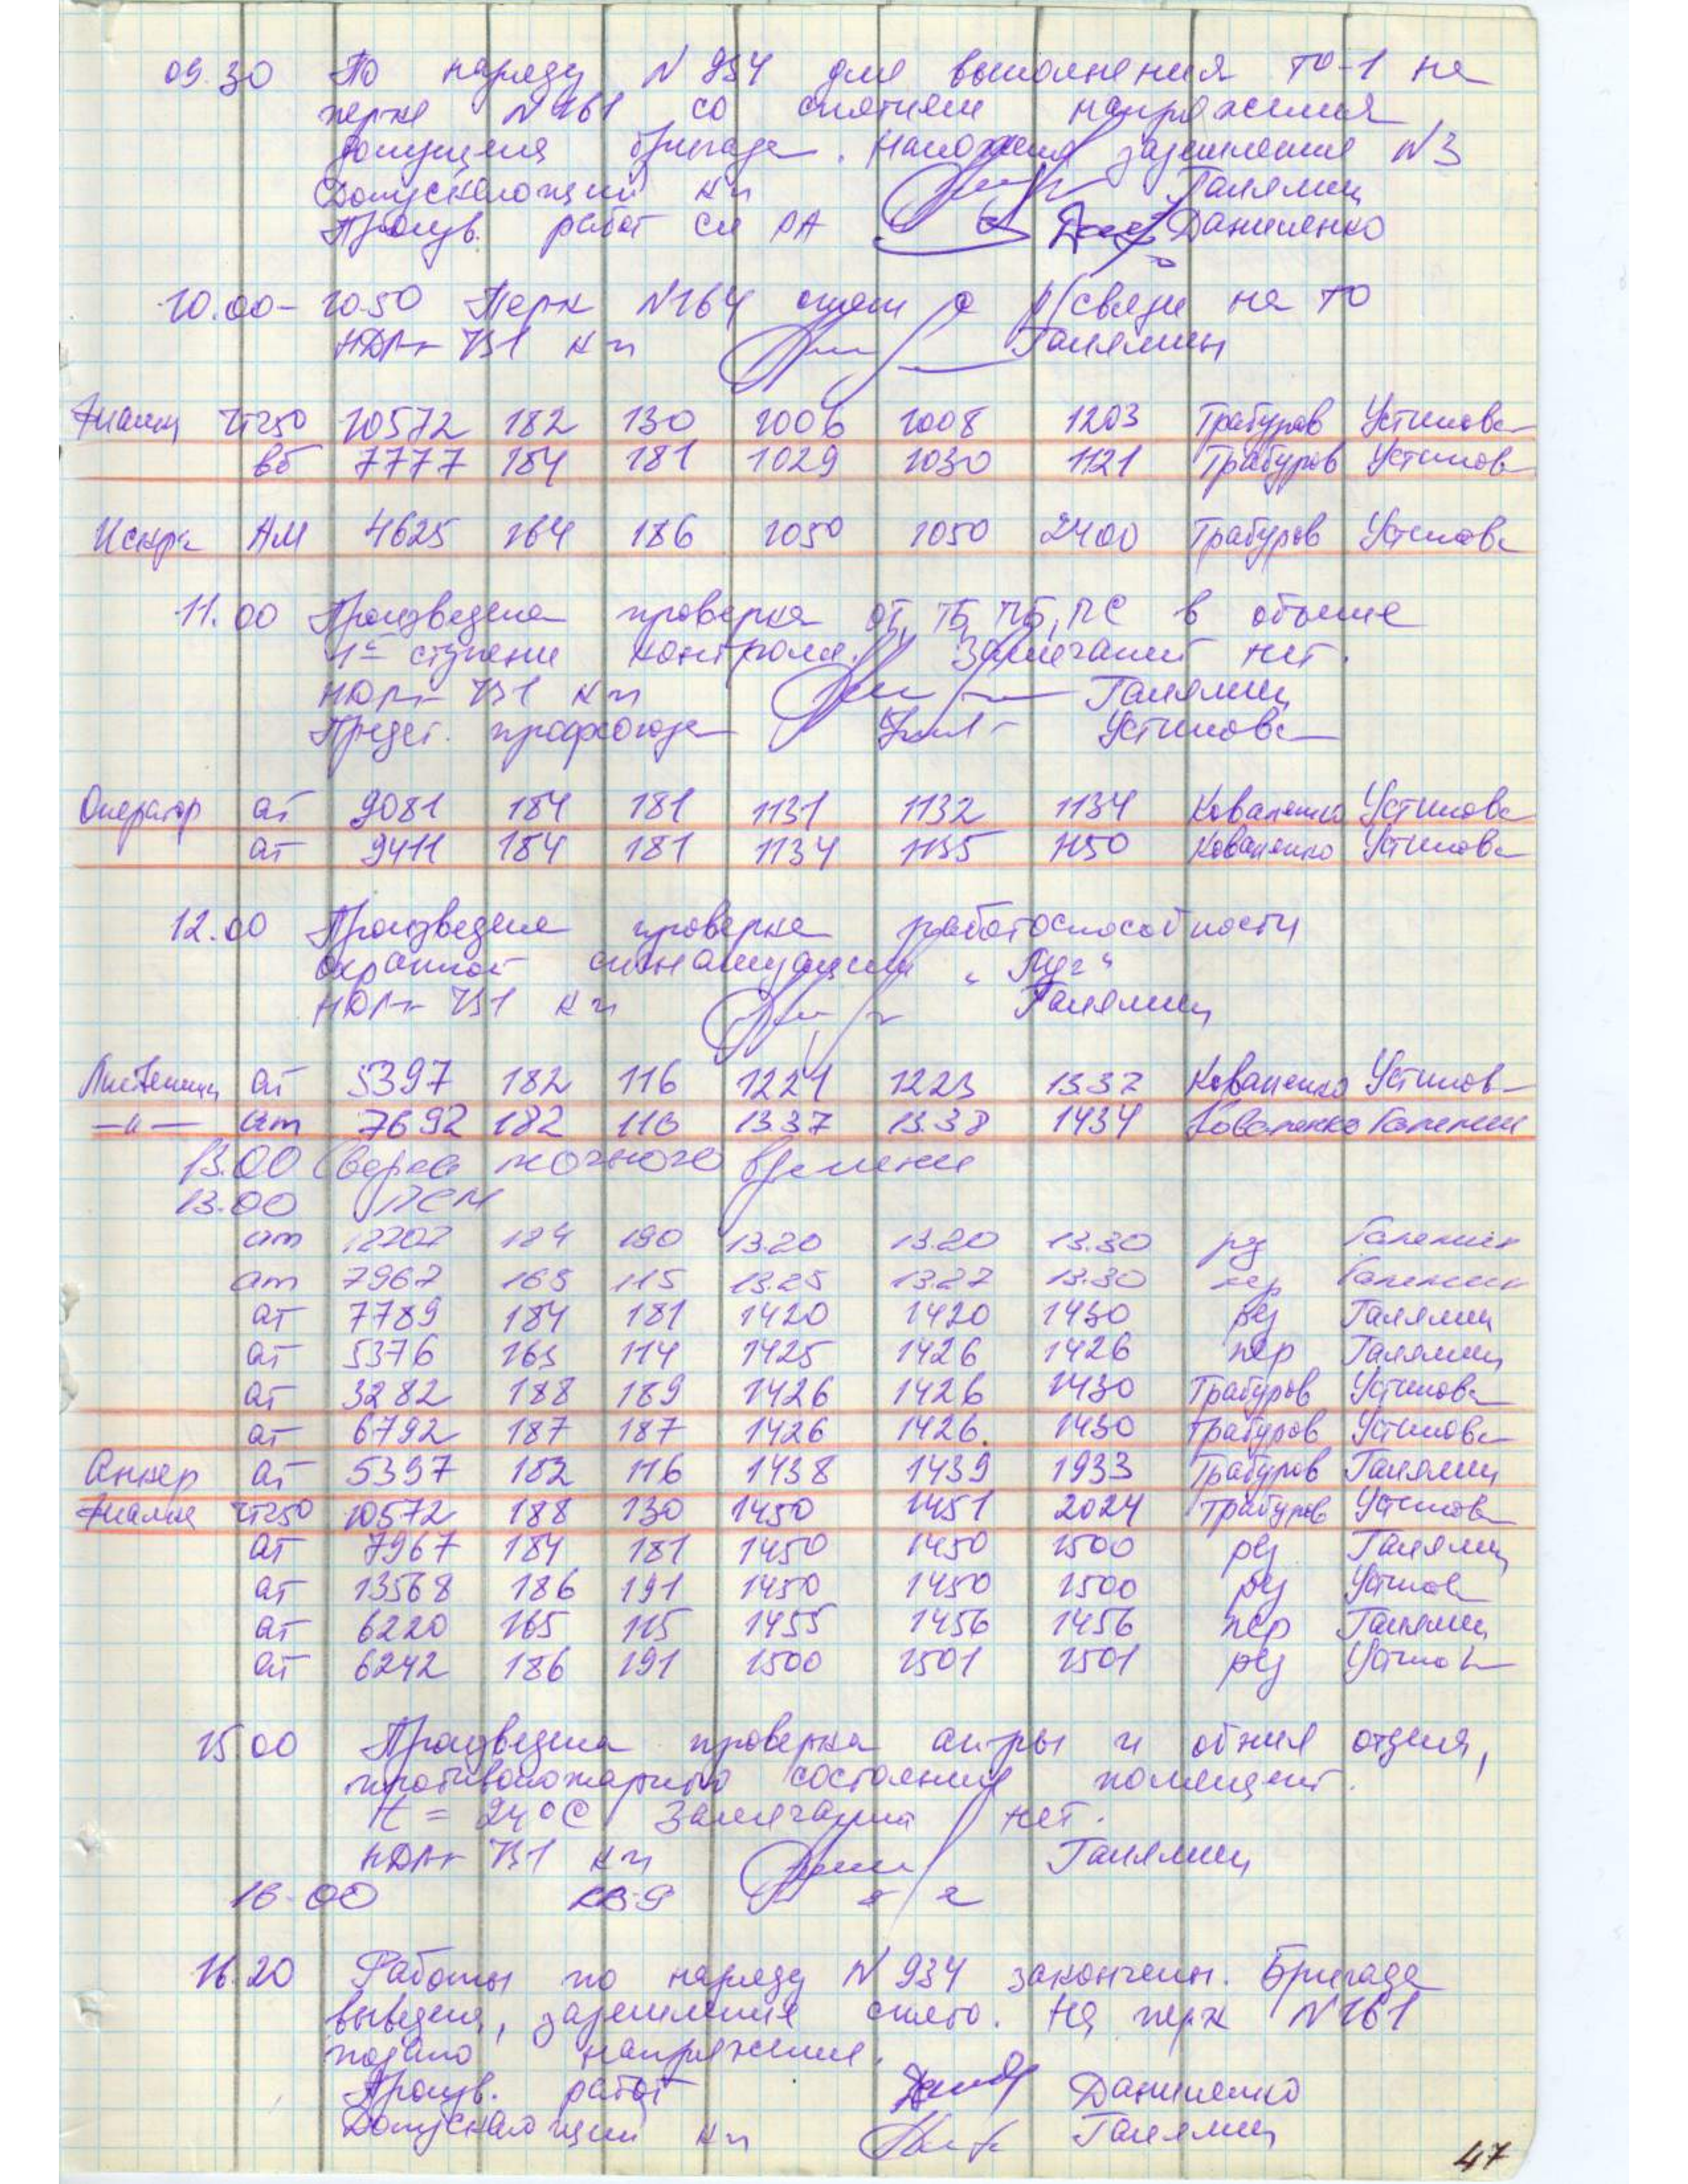 09.30 По наряду N 934 для выполнения ТО-1 на
перке N 161 со снятием напряжения
допущена бригада. Наложена заземления N3
Допускающий кп Галямин
Произв. работ см РА Даниленко
10.00-1050 Перк N164 снят с р/связи на ТО
кп Галямин
чт250 10572 182 130 1006 1008 1203 Трабуров Устинова
вб 7777 184 181 1029 1030 1121 Трабуров Устинов
Искра АМ 4625 164 186 1050 1050 2400 Трабуров Устинова
11.00 Произведена проверка ОТ, ТБ, ПБ, ПС в объеме
1й ступени контроля. Замечаний нет.
кп Галямин
Предст. профсоюза Устинова
Оператор ат 9081 184 181 1131 1132 1134 Коваленко Устинова
ат 9411 184 181 1134 1135 1150 Коваленко Устинова
12.00 Произведена проверка работоспособности
охранной сигнализации „Луг“
кп Галямин
ат 5397 182 116 1221 1223 1337 Коваленко Устинов
—"— ат 7692 182 116 1337 1338 1434 Коваленко Галямин
13.00 Сверка точного времени
13.00 ПСМ
ат 12202 184 190 1320 13.20 13.30 рез Галямин
ат 7967 165 115 13.25 13.27 13.30 пер Галямин
ат 7789 184 181 1420 1420 1430 рез Галямин
ат 5376 165 114 1425 1426 1426 пер Галямин
ат 3282 188 189 1426 1426 1430 Трабуров Устинова
ат 6792 187 187 1426 1426. 1430 Трабуров Устинова
Анкер ат 5397 182 116 1438 1439 1933 Трабуров Галямин
чт250 10572 188 130 1450 1451 2024 Трабуров Устинов
ат 7967 184 181 1450 1450 1500 рез Галямин
ат 13568 186 191 1450 1450 1500 рез Устинов
ат 6220 165 115 1455 1456 1456 пер Галямин
ат 6242 186 191 1500 1501 1501 рез Устинов
15.00 Произведена проверка ап-ры и обния отдния,
противопожарного состояния помещений.
t = 24°C Замечаний нет.
кп Галямин
16.00
16.20 Работы по наряду N 934 закончены. Бригада
выведена, заземления снято. На перк N161
подано напряжение.
Произв. работ Даниленко
Допускающий кп Галямин
47